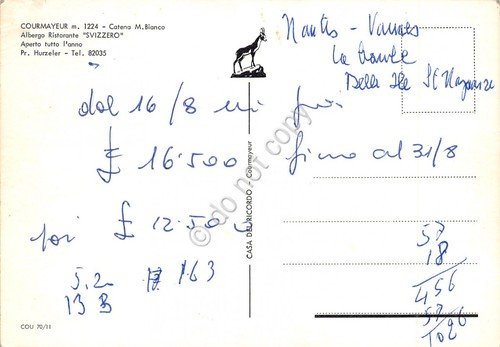 COURMAYEUR m. 1224 - Catena M. Bianco
Albergo Ristorante "SVIZZERO"
Aperto tutto l'anno
Pr. Hurzeler - Tel. 82035
Nantes - Vannes
La Baule
St Nazaire
dal 16/8
£ 16.500
fino al 31/8
poi £ 12.500
163
57
18
456
57
1026
CASA DEL RICORDO - Courmayeur
COU 70/11
do not copy